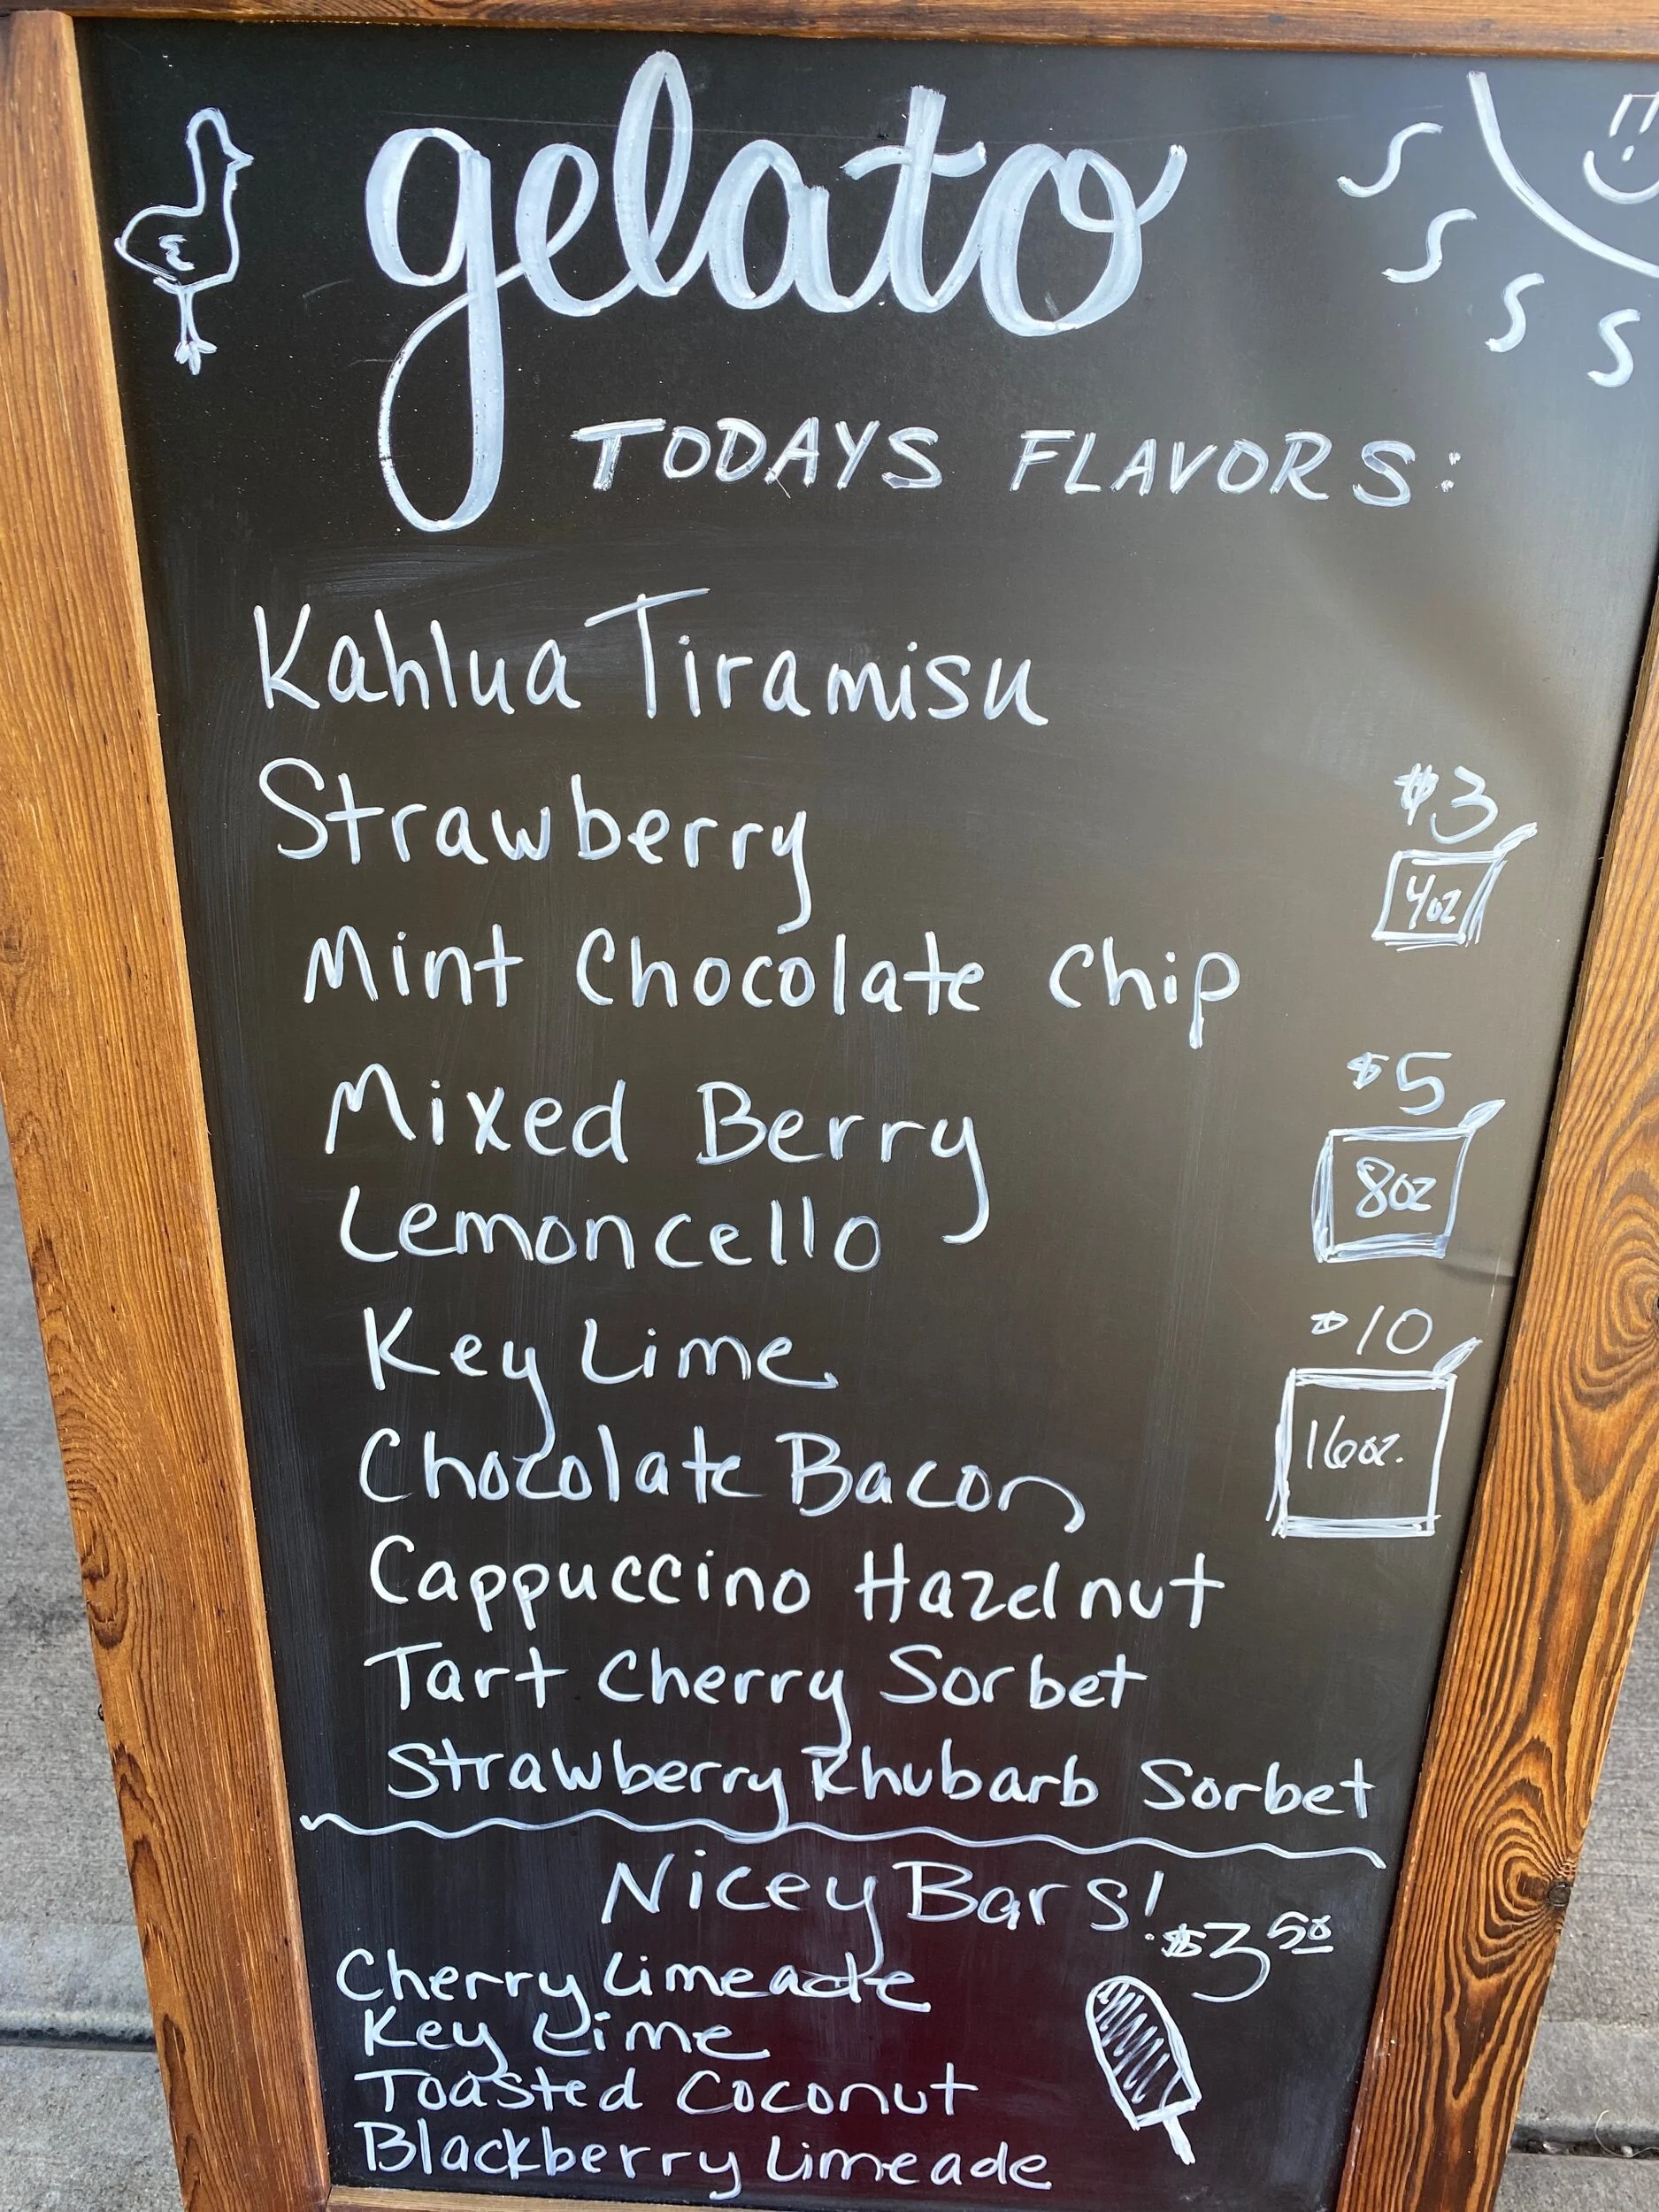 gelato
TODAYS FLAVORS:
Kahlua Tiramisu
Strawberry
$3
4oz
Mint Chocolate Chip
Mixed Berry
$5
8oz
Lemoncello
Key Lime
$10
16oz.
Chocolate Bacon
Cappuccino Hazelnut
Tart Cherry Sorbet
Strawberry Rhubarb Sorbet
Nicey Bars!
$3 50
Cherry Limeade
Key Lime
Toasted Coconut
Blackberry Limeade